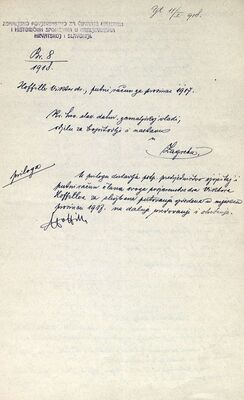 4/I 1918.
ZEMALJSKO POVJERENSTVO ZA ČUVANJE UMJETNIH
I HISTORIČKIH SPOMENIKA U KRALJEVINAMA
HRVATSKOJ I SLAVONIJI
Br. 8
1918.
Hoffiller Viktor dr., putni račun za prosinac 1917.
Kr. hrv. slav. dalm. zemaljskoj vladi,
odjelu za bogoštovlje i nastavu
u
Zagrebu
priloga
U prilogu dostavlja potp. predsjedništvo
putni račun člana ovoga povjerenstva dra Viktora
Hoffillera za službena putovanja u mjesecu
prosincu 1917. na dalnje uredovanje i